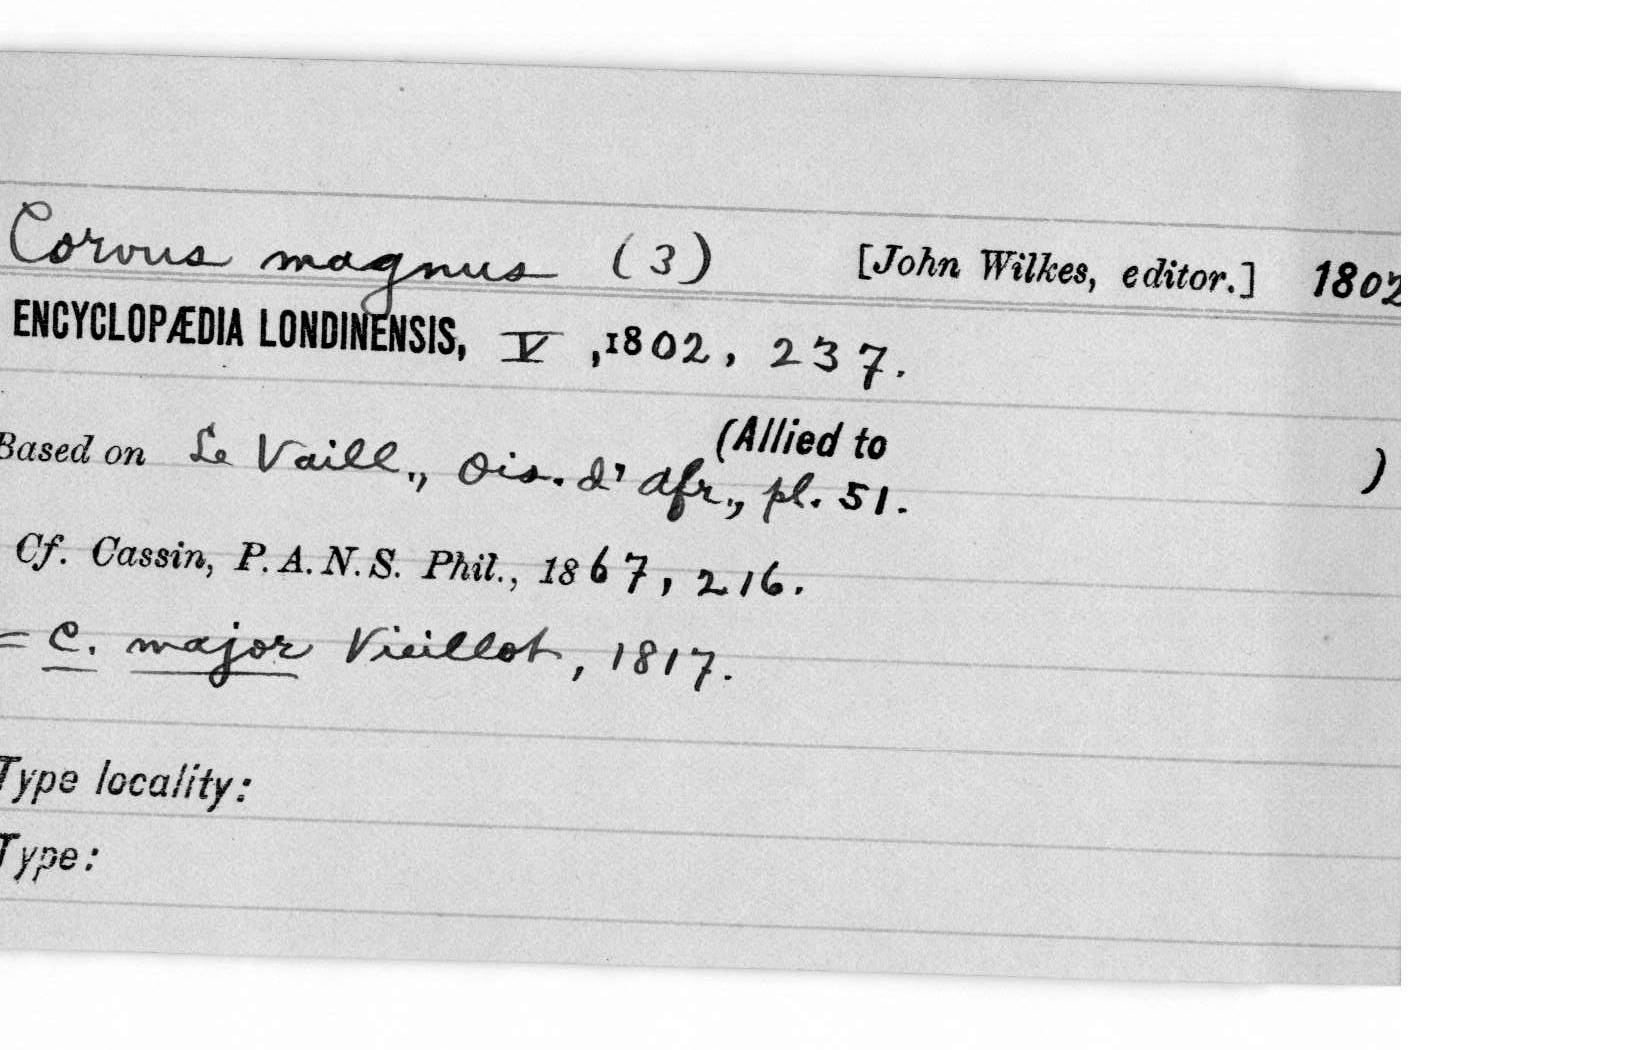 Corvus magnus (3) [John Wilkes, editor.] 1802
ENCYCLOPÆDIA LONDINENSIS, V, 1802, 237.
(Allied to )
Based on Le Vaill., Ois. d'Afr., pl. 51.
Cf. Cassin, P. A. N. S. Phil., 1867, 216.
= C. major Vieillot, 1817.
Type locality:
Type: